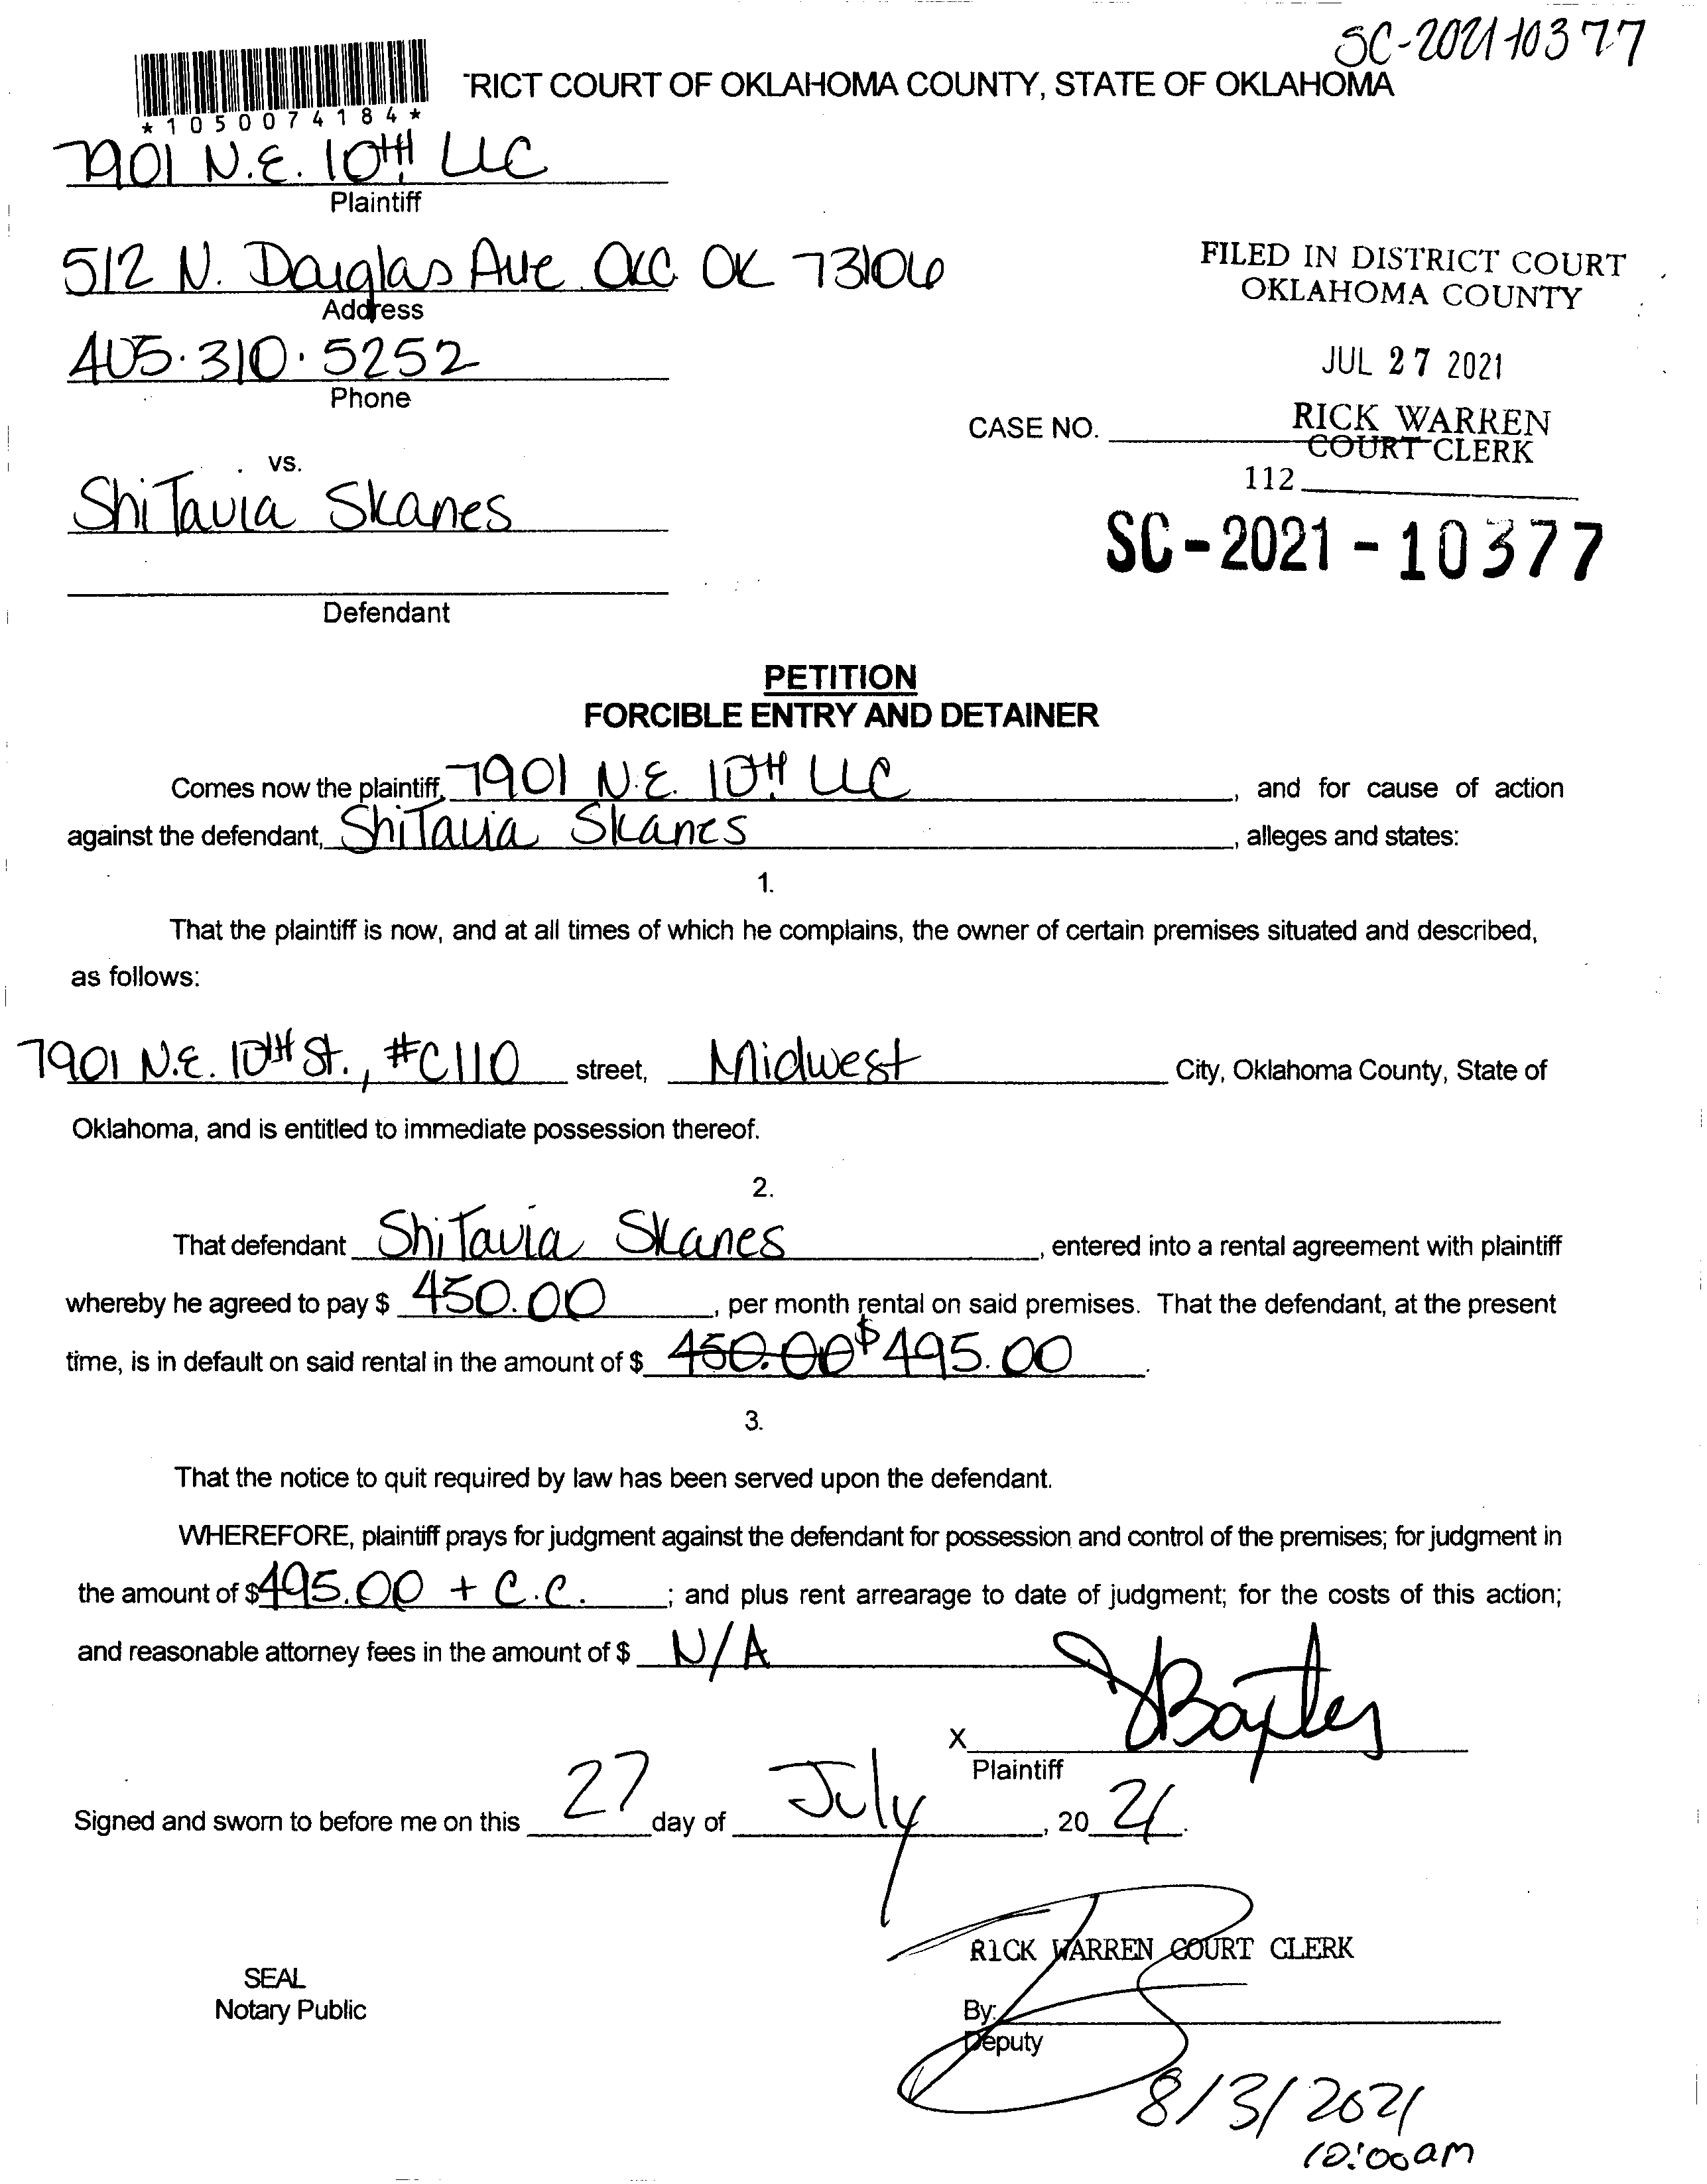 SC-2021-10377
RICT COURT OF OKLAHOMA COUNTY, STATE OF OKLAHOMA
*1050074184*
7901 N.E. 10TH LLC
Plaintiff
512 N. Douglas Ave OKC OK 73106
Address
FILED IN DISTRICT COURT
OKLAHOMA COUNTY
405.310.5252
Phone
JUL 27 2021
RICK WARREN
COURT CLERK
CASE NO.
112
vs.
ShiTavia Skanes
SC-2021-10377
Defendant
PETITION
FORCIBLE ENTRY AND DETAINER
Comes now the plaintiff, 7901 N.E. 10TH LLC, and for cause of action
against the defendant, ShiTavia Skanes, alleges and states:
1.
That the plaintiff is now, and at all times of which he complains, the owner of certain premises situated and described,
as follows:
7901 N.E. 10TH St., #C110 street, Midwest City, Oklahoma County, State of
Oklahoma, and is entitled to immediate possession thereof.
2.
That defendant ShiTavia Skanes, entered into a rental agreement with plaintiff
whereby he agreed to pay $ 450.00, per month rental on said premises. That the defendant, at the present
time, is in default on said rental in the amount of $ 450.00 $495.00.
3.
That the notice to quit required by law has been served upon the defendant.
WHEREFORE, plaintiff prays for judgment against the defendant for possession and control of the premises; for judgment in
the amount of $495.00 + C.C.; and plus rent arrearage to date of judgment; for the costs of this action;
and reasonable attorney fees in the amount of $ N/A
X JBaxter
Plaintiff
Signed and sworn to before me on this 27 day of July, 2021.
RICK WARREN COURT CLERK
SEAL
Notary Public
By:
Deputy
8/3/2021
10:00am